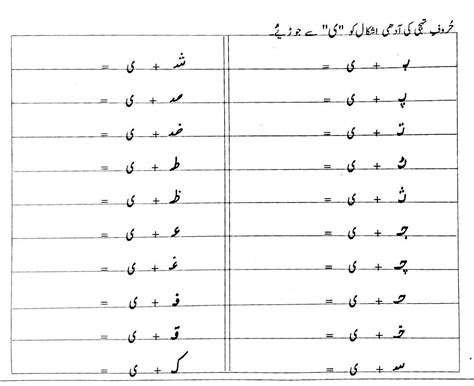 حُروفِ تہجی کی آدھی اشکال کو "ی" سے جوڑیئے۔
بـ + ی =
پـ + ی =
تـ + ی =
ٹـ + ی =
ثـ + ی =
جـ + ی =
چـ + ی =
حـ + ی =
خـ + ی =
سـ + ی =
شـ + ی =
صـ + ی =
ضـ + ی =
طـ + ی =
ظـ + ی =
عـ + ی =
غـ + ی =
فـ + ی =
قـ + ی =
کـ + ی =